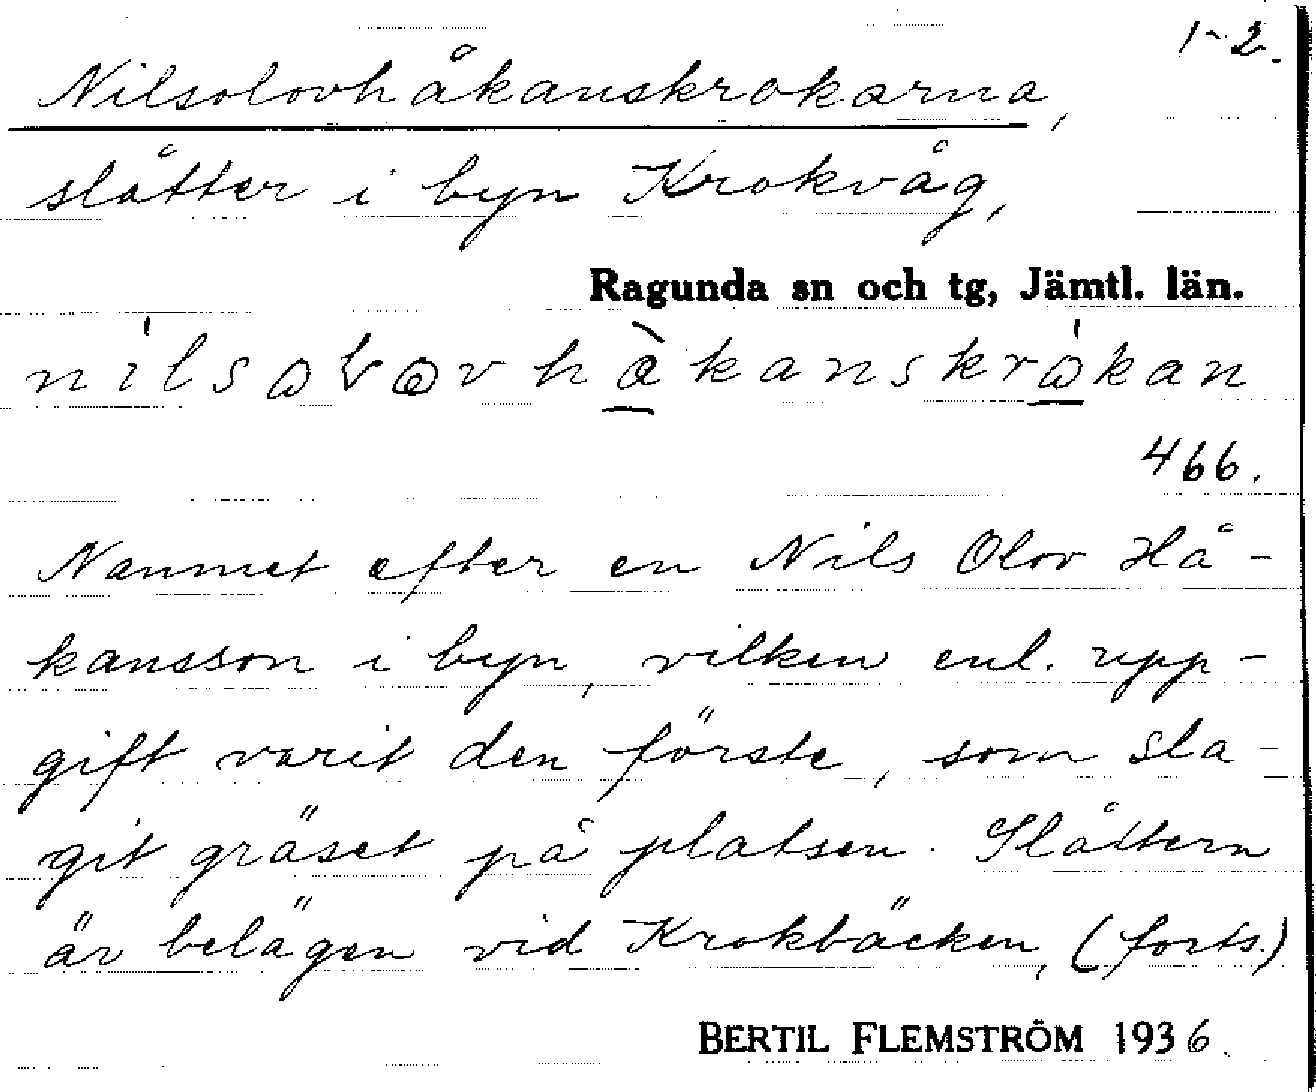 1-2.
Nilsolovhåkanskrokarna,
slåtter i byn Krokvåg,
Ragunda sn och tg, Jämtl. län.
466.
Namnet efter en Nils Olov Hå-
kansson i byn, vilken enl. upp-
gift varit den förste, som sla-
git gräset på platsen. Slåttern
är belägen vid Krokbäcken, (forts.)
BERTIL FLEMSTRÖM 1936.